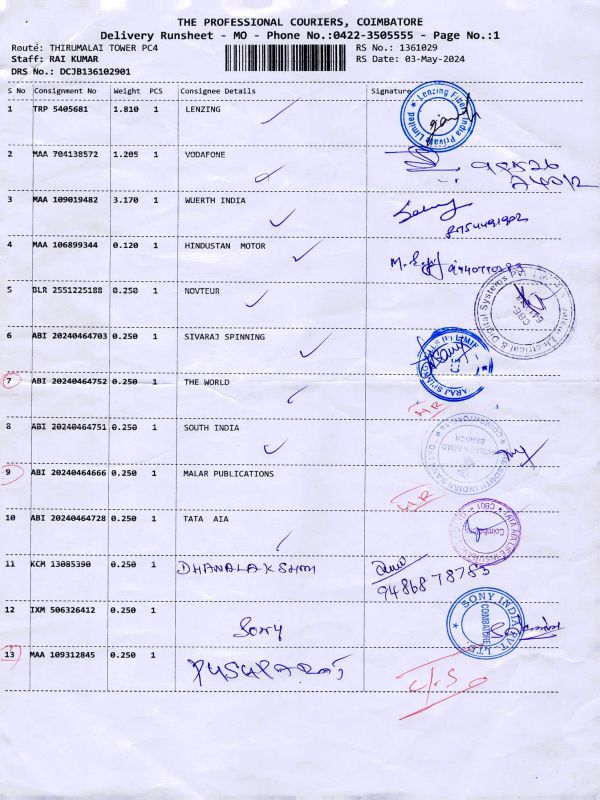 THE PROFESSIONAL COURIERS, COIMBATORE
Delivery Runsheet - MO - Phone No.:0422-3505555 - Page No.:1
Route: THIRUMALAI TOWER PC4 RS No.: 1361029
Staff: RAI KUMAR RS Date: 03-May-2024
DRS No.: DCJB136102901
S No Consignment No Weight PCS Consignee Details Signature
1 TRP 5405681 1.810 1 LENZING
Lenzing Fibers India Private Limited
2 MAA 704138572 1.205 1 VODAFONE
3 MAA 109019482 3.170 1 WUERTH INDIA
4 MAA 106899344 0.120 1 HINDUSTAN MOTOR
5 BLR 2551225188 0.250 1 NOVTEUR
Electrical & Digital Systems
CBE
6 ABI 20240464703 0.250 1 SIVARAJ SPINNING
7 ABI 20240464752 0.250 1 THE WORLD
8 ABI 20240464751 0.250 1 SOUTH INDIA
SOUTH INDIAN BANK
BRANCH
9 ABI 20240464666 0.250 1 MALAR PUBLICATIONS
10 ABI 20240464728 0.250 1 TATA AIA
11 KCM 13085390 0.250 1 DHANALAKSHMI
94868 78783
12 IXM 506326412 0.250 1 Sony
SONY INDIA PVT. LTD.
COIMBATORE
13 MAA 109312845 0.250 1 PUSHPARAJ